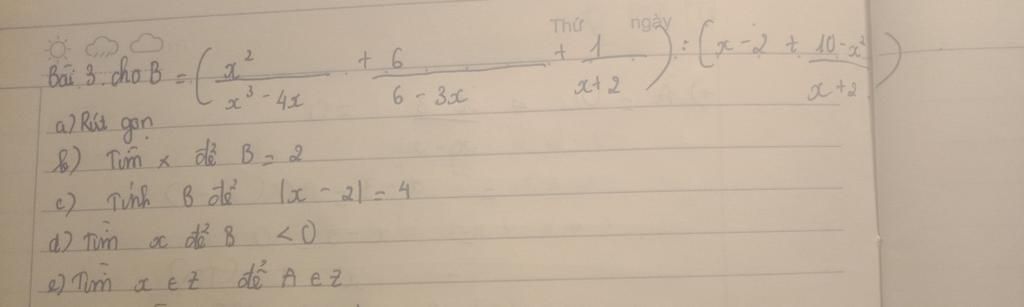 Thứ ngày
Bài 3. cho B = ( x²/(x³ - 4x) + 6/(6 - 3x) + 1/(x+2) ) : ( x - 2 + (10 - x²)/(x+2) )
a) Rút gọn
b) Tìm x để B = 2
c) Tính B để |x - 2| = 4
d) Tìm x để B < 0
e) Tìm x ∈ Z để A ∈ Z